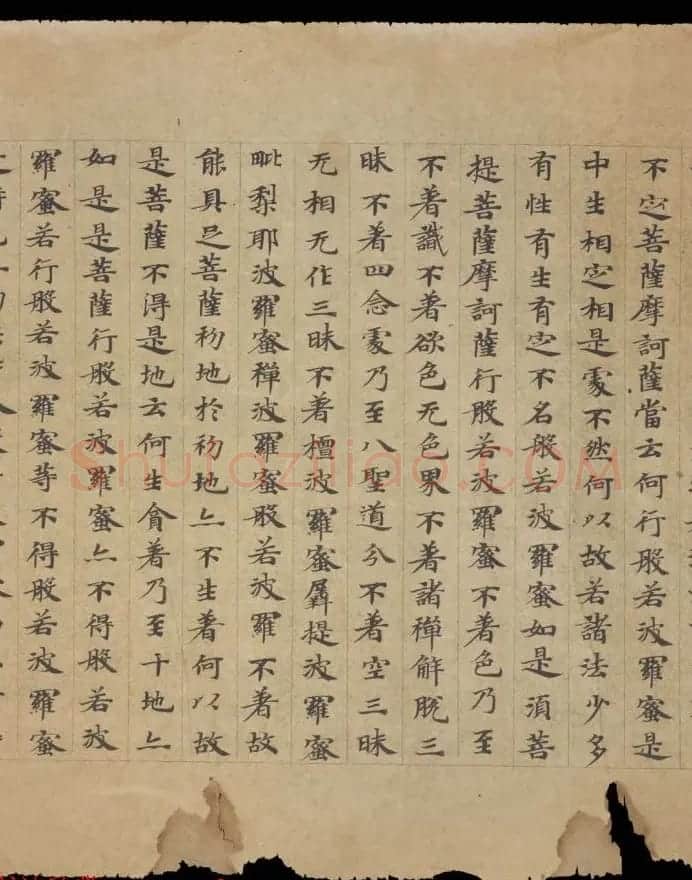 不定菩薩摩訶薩當云何行般若波羅蜜是
中生相定相是處不然何以故若諸法少多
有性有生有定不名般若波羅蜜如是湏菩
提菩薩摩訶薩行般若波羅蜜不著色乃至
不著識不著欲色无色界不著諸禪解脫三
昧不著四念處乃至八聖道分不著空三昧
无相无作三昧不著檀波羅蜜羼提波羅蜜
毗梨耶波羅蜜禪波羅蜜般若波羅不著故
能具足菩薩初地於初地亦不生著何以故
是菩薩不得是地云何生貪著乃至十地亦
如是是菩薩行般若波羅蜜亦不得般若波
羅蜜若行般若波羅蜜等不得般若波羅蜜
Shufaziliao.COM